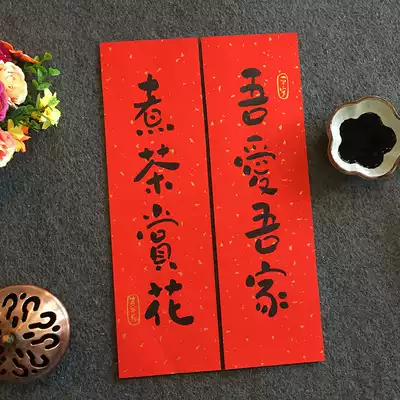 吾愛吾家
煮茶賞花